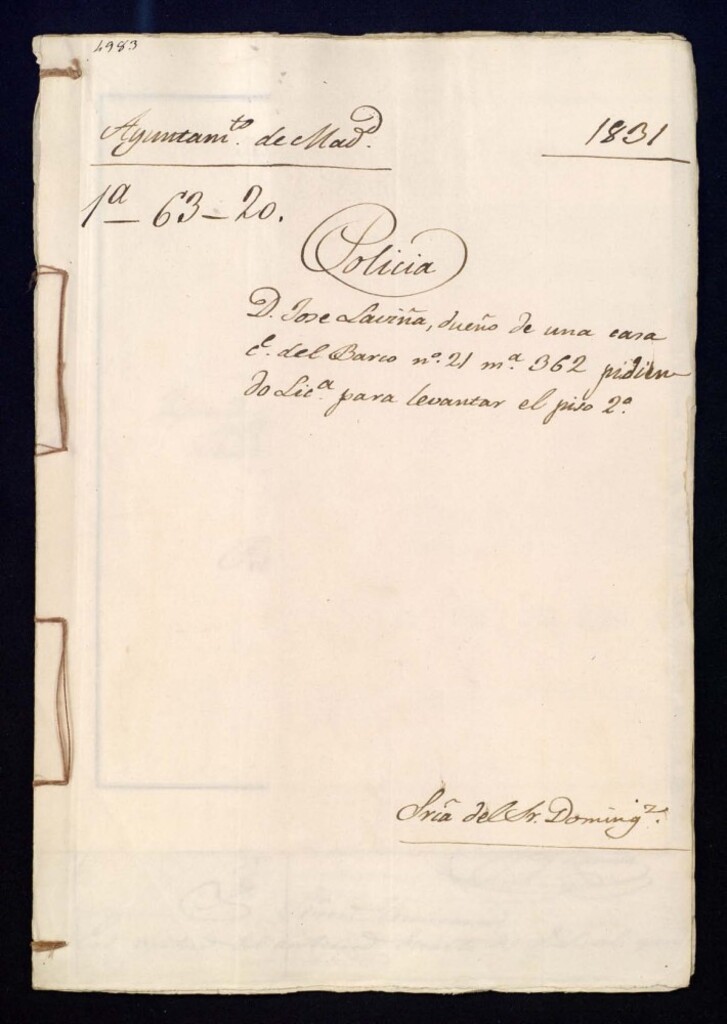 4983
Ayuntam.to de Mad.d
1831
1a—63—20.
Policia
D. Jose Laviña, dueño de una casa
c.e del Barco no. 21 m.a 362 pidien
do Lic.a para levantar el piso 2o.
Sria del Sr. Doming.z